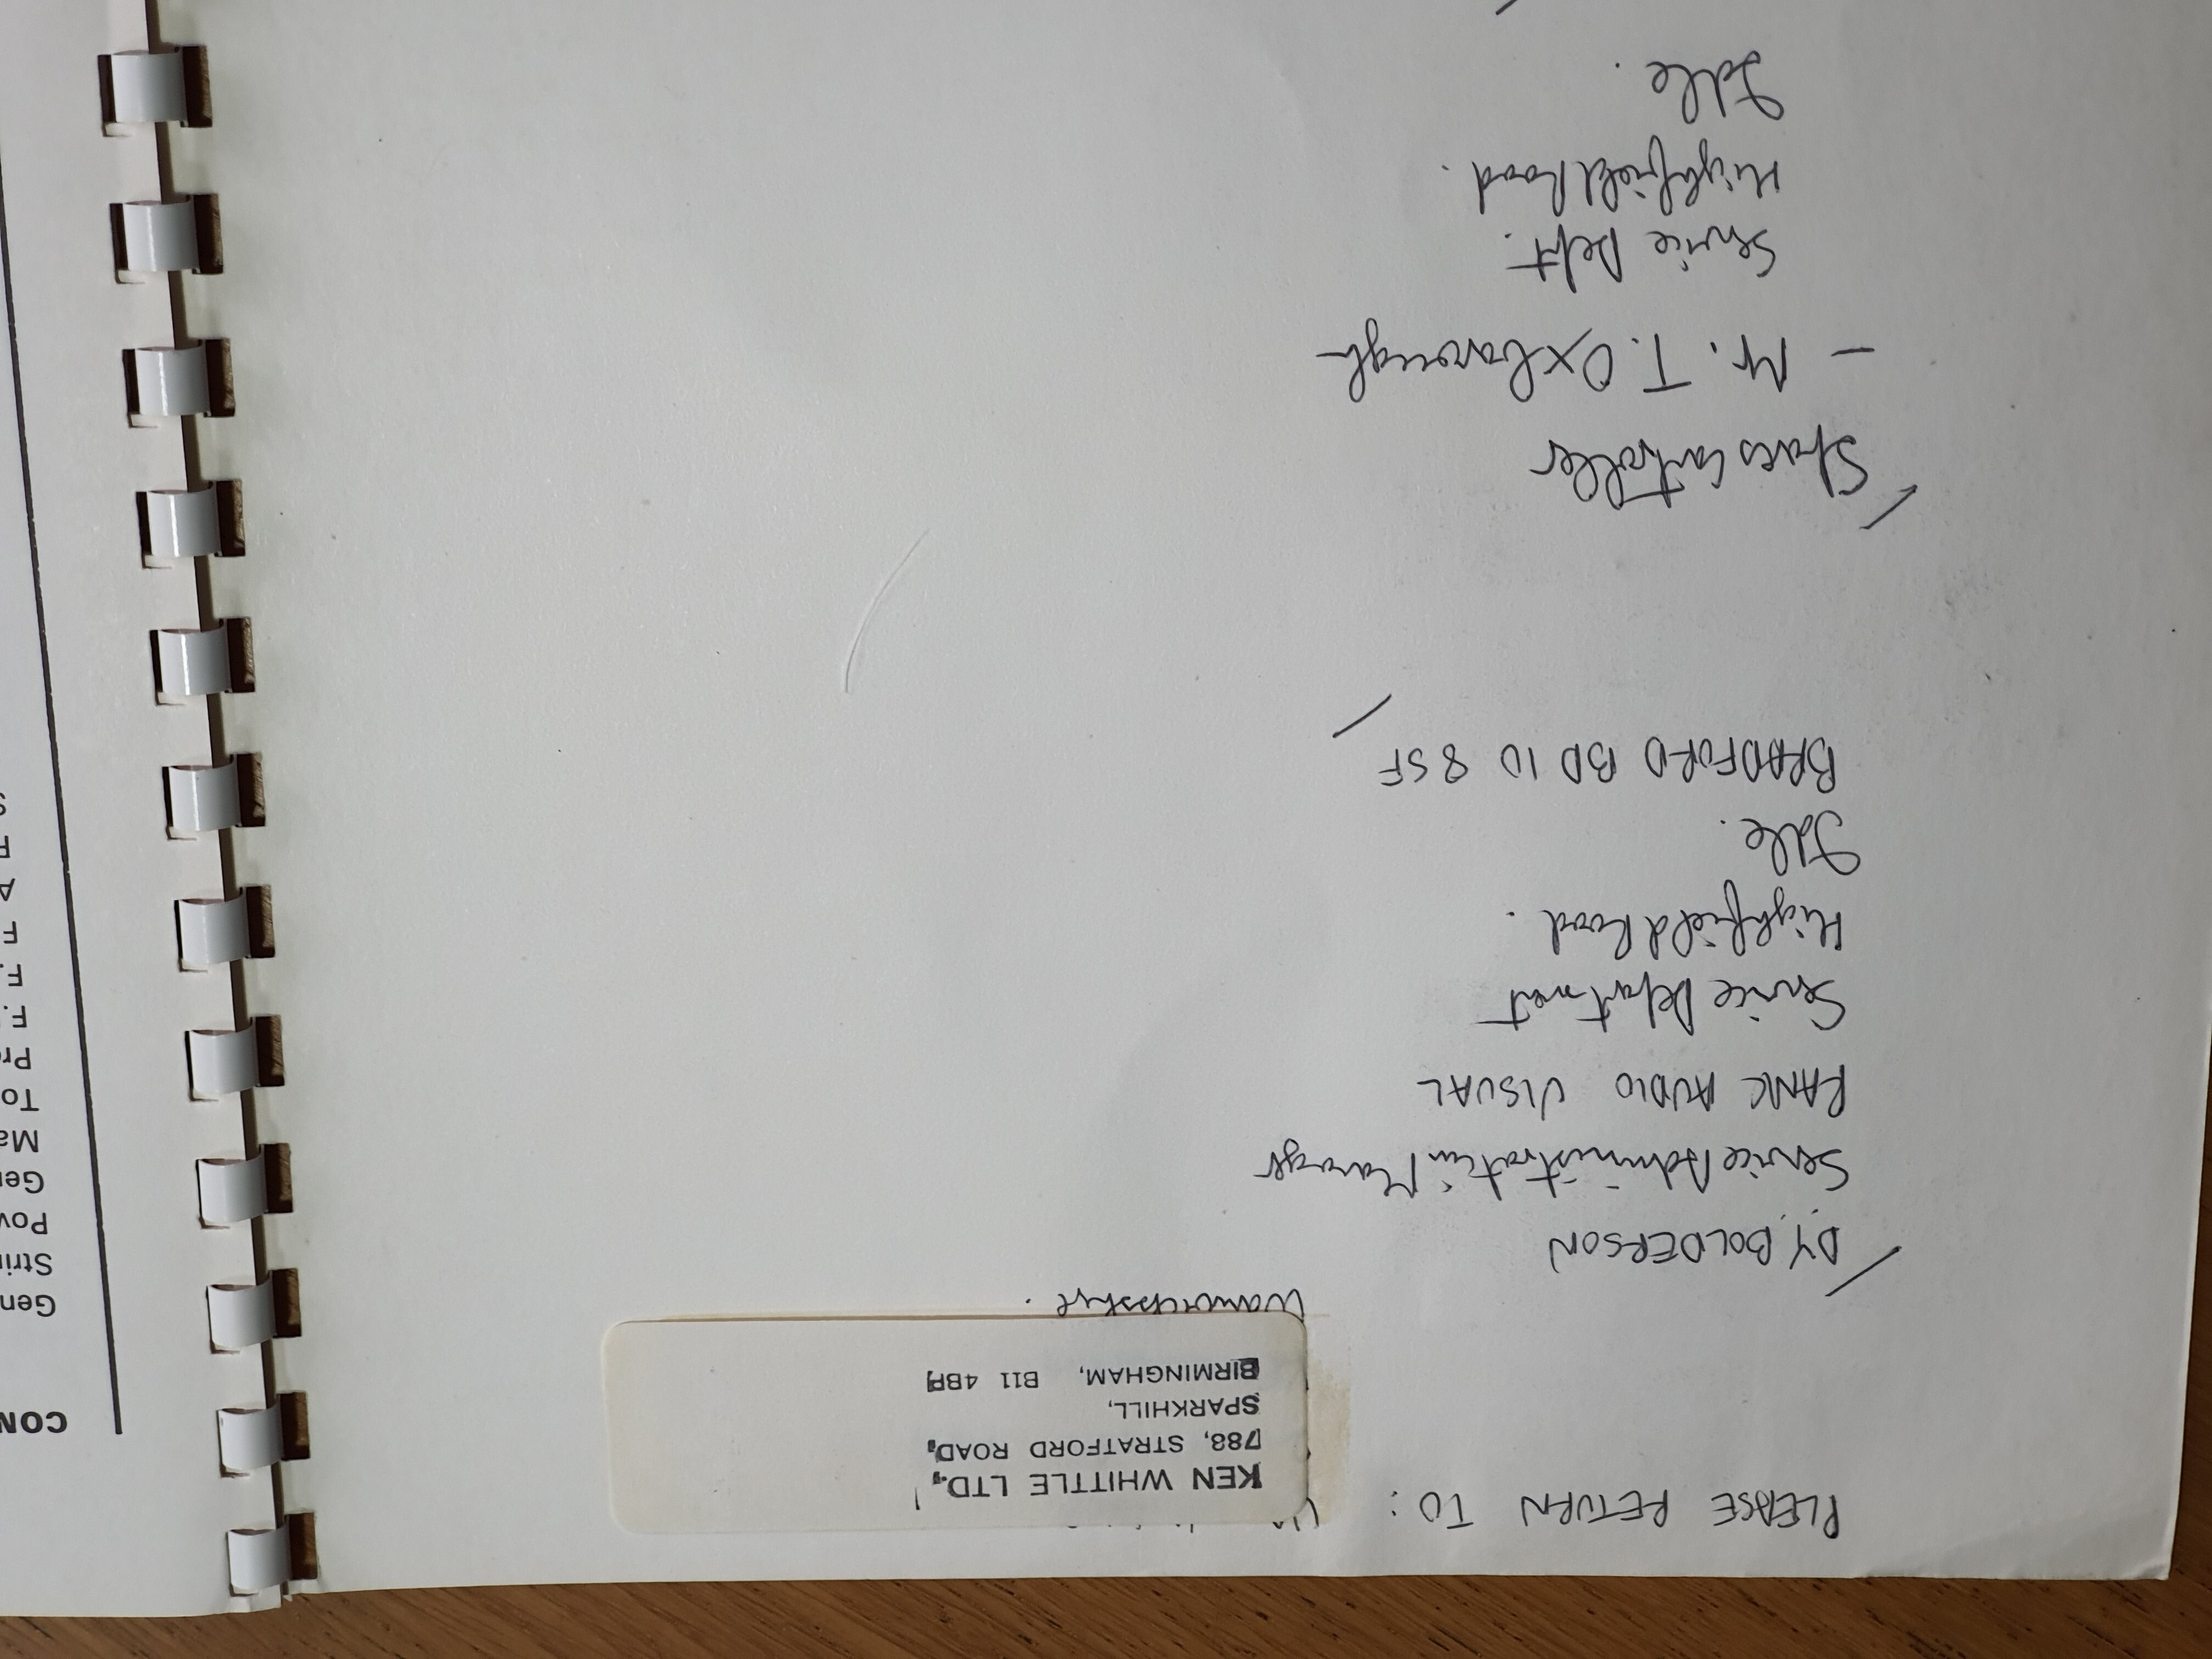 PLEASE RETURN TO:
KEN WHITTLE LTD.,
788, STRATFORD ROAD,
SPARKHILL,
BIRMINGHAM, B11 4BP
Warwickshire.
D.Y. BOLDERSON
Service Administration Manager
RANK AUDIO VISUAL
Service Department
Highfield Road.
Idle.
BRADFORD BD10 8SF
Spares Controller
- Mr. T. Oxborough
Service Dept.
Highfield Road.
Idle.
CON
Gen
Strin
Pow
Gen
Ma
To
Pr
F.
F.
F
A
F
S